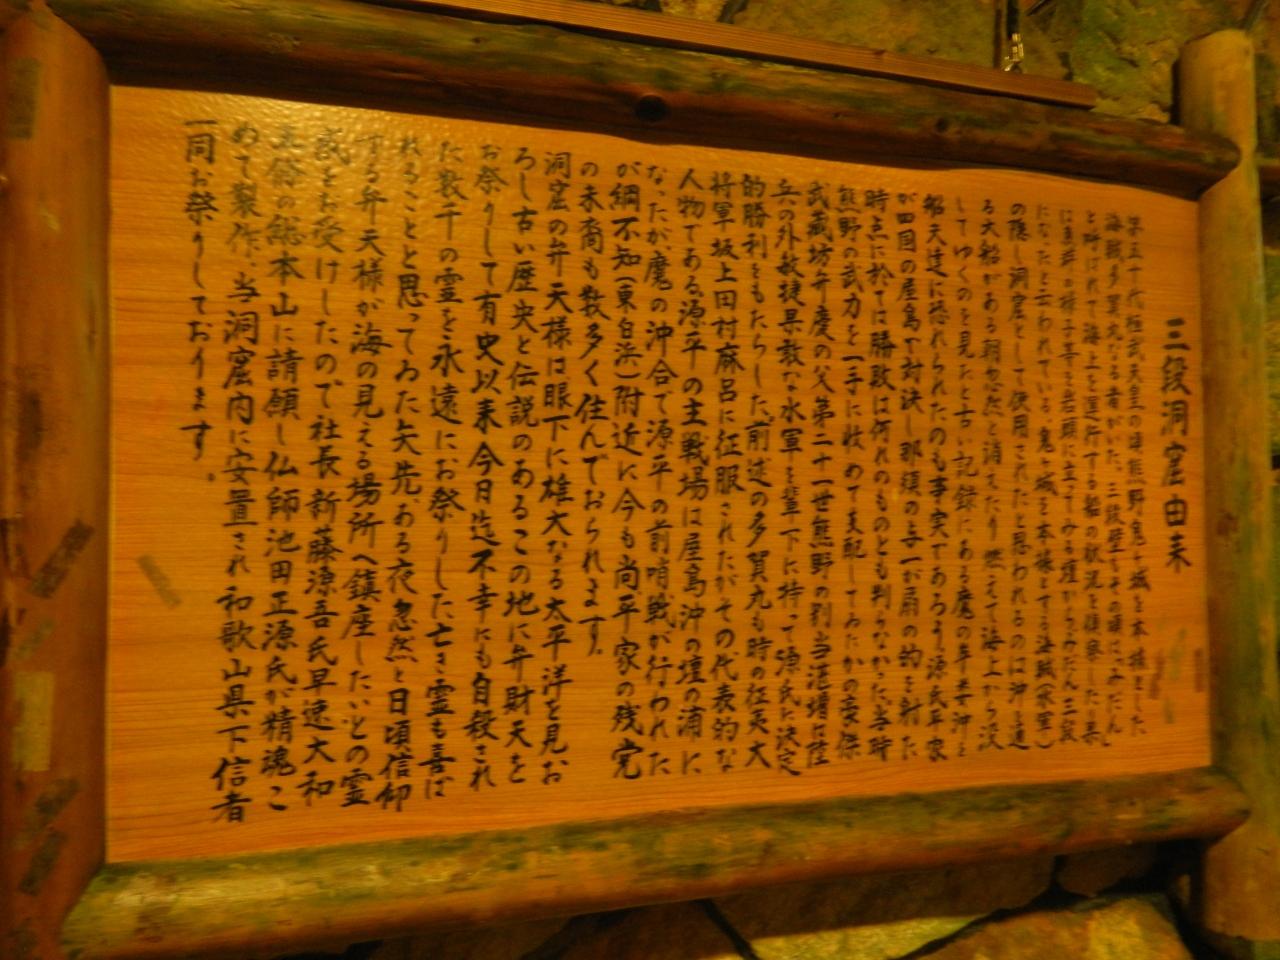 三段洞窟由来
第五十代桓武天皇の頃熊野鬼ヶ城を本據とした
海賊多賀丸なる者がいた、三段壁もその頃は「みだん」
と呼ばれて海上を運行する船の状況を偵察した
は見
になったと云われている鬼ヶ城を本據とする海賊(水軍)
の隠し洞窟として使用されたと思われるのは沖を通
る大船がある朝忽然と消えたり燃えて海上から没
してゆくのを見たと古い記録にある魔の
船夫達に恐れられたのも事実であろう源氏平家
が四国の屋島で対決し那須の与一が扇の的を射た
時点に於ては勝敗は何れのものとも判らなかった当時
熊野の武力を一手に收めて支配しておたかの豪傑
武蔵坊弁慶の父第二十一世熊野の別当湛増は陸
兵の外敏捷果敢な水軍を輩下に持って源氏に決定
的勝利をもたらした、前述の多賀丸も時の征夷大
将軍坂上田村麻呂に征服されたがその代表的な
人物である源平の主戦場は屋島沖の壇の浦に
なったが魔の沖合で源平の前哨戦が行われた
が綱不知(東白浜)附近に今も尚平家の残党
の末裔も数多く住んでおられます。
洞窟の弁天様は眼下に雄大なる太平洋を見お
ろし古い歴史と伝説のあるこの地に弁財天を
お祭りして有史以来今日迄不幸にも自殺され
た数千の霊を永遠にお祭りした亡き霊も喜ば
れることと思ってろた矢先ある夜忽然と日頃信仰
する弁天様が海の見える場所へ鎮座したいとの霊
感をお受けしたので社長新藤源吾氏早速大和
の総本山に請願し仏師池田正源氏が精魂こ
めて製作、当洞窟内に安置され和歌山県下信者
一同お祭りしております。